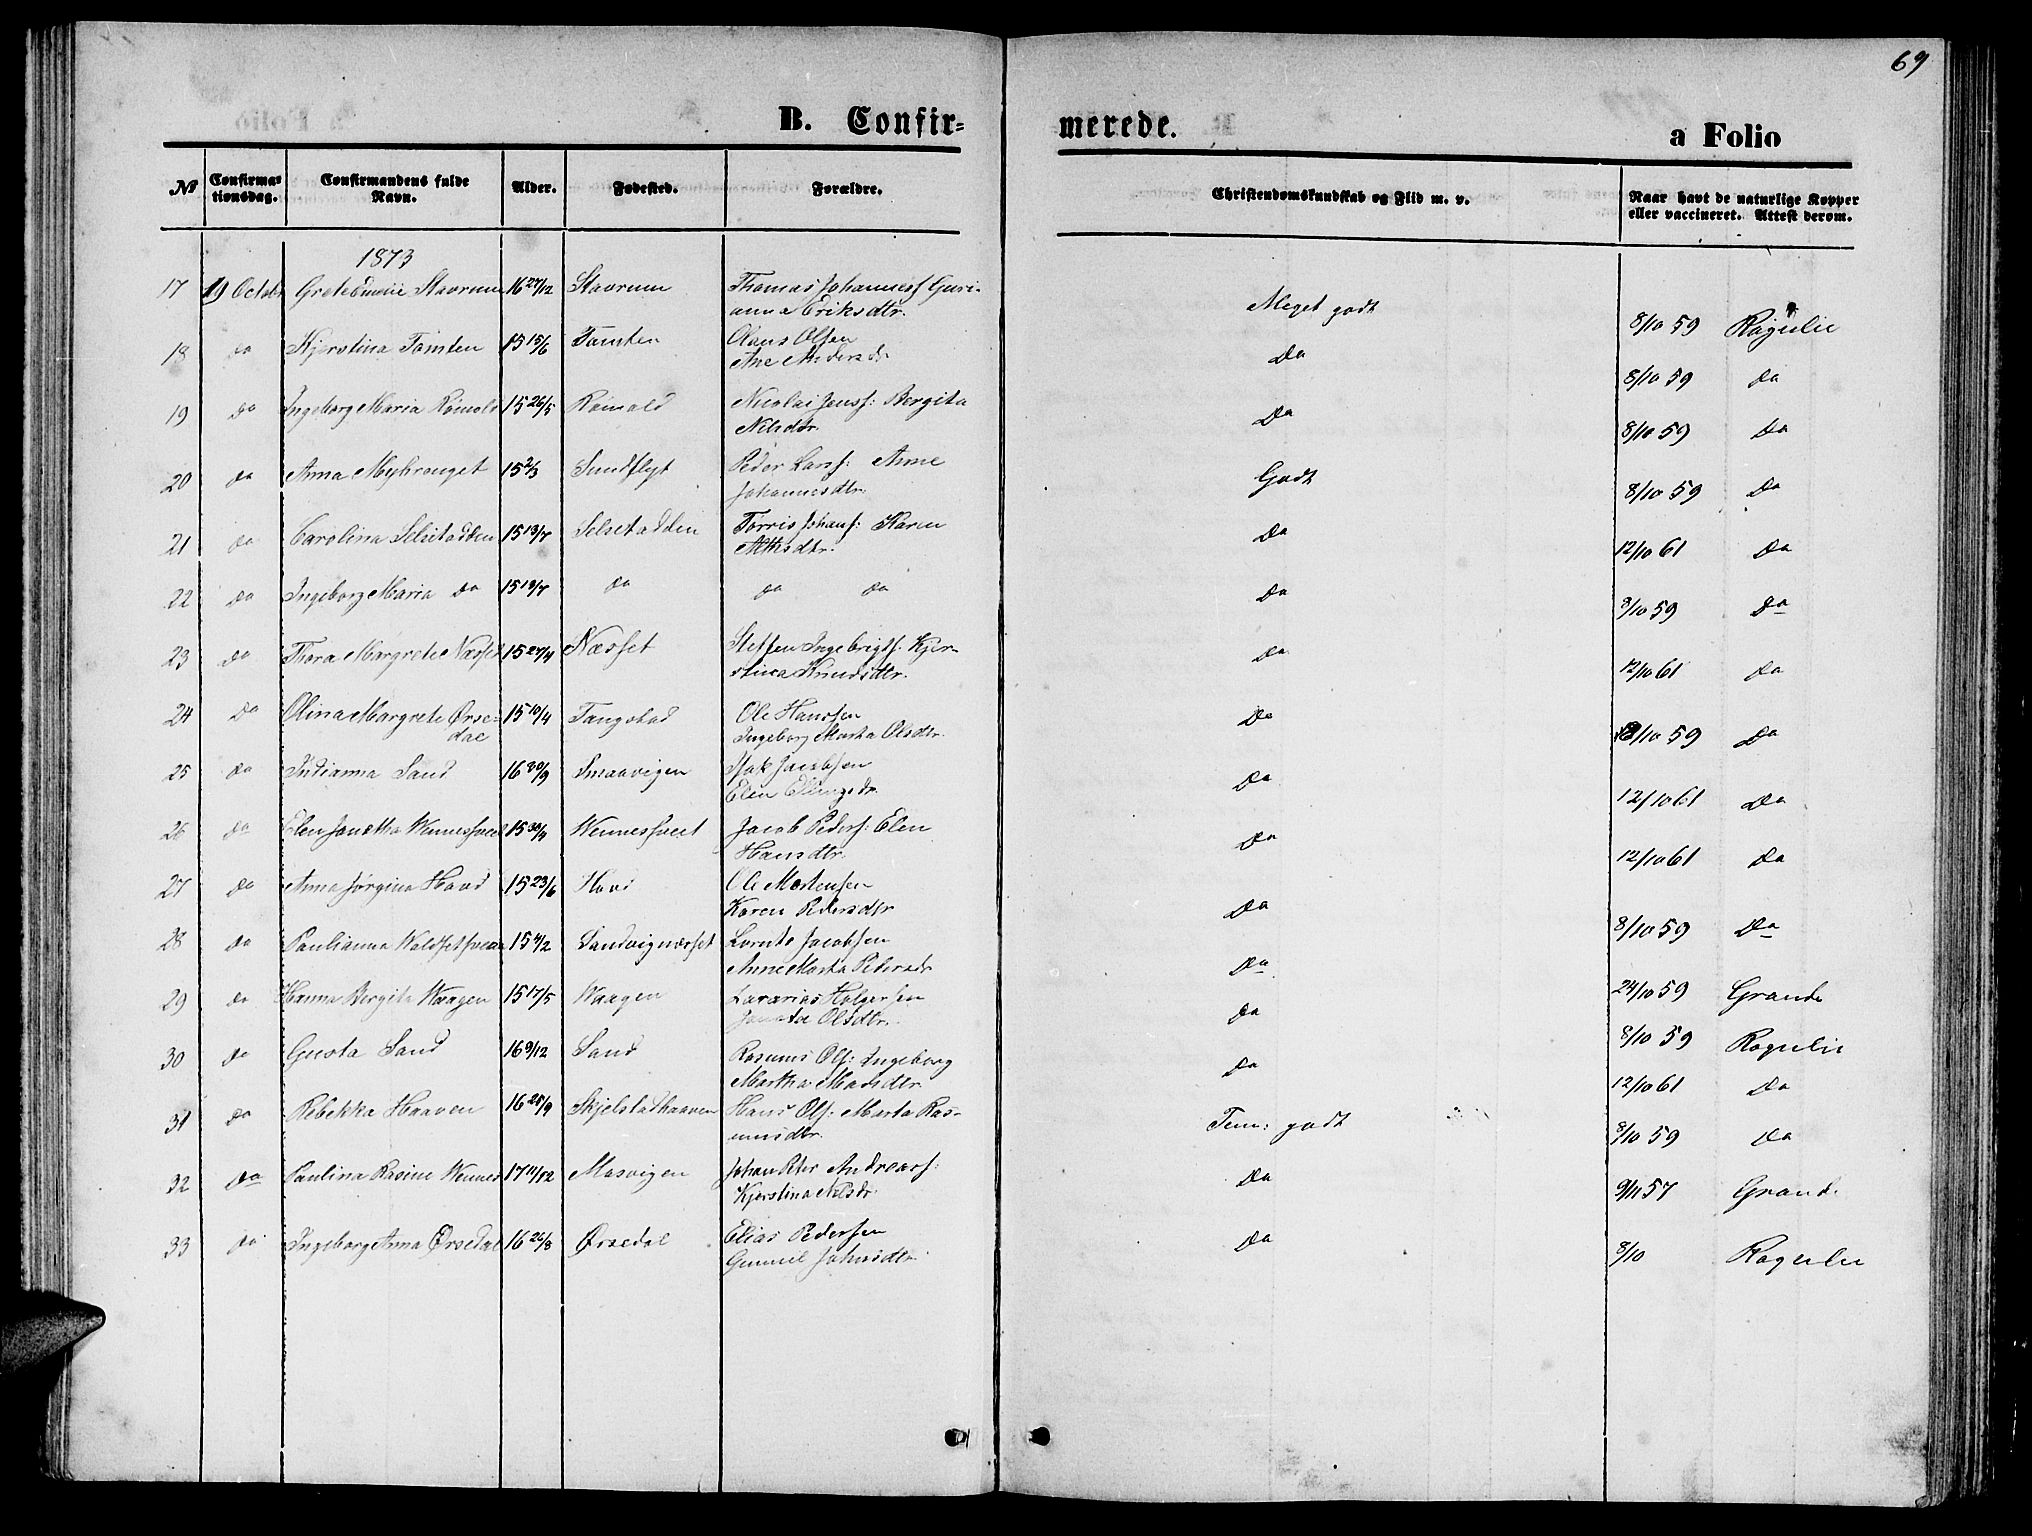 69
B. Confir=
merede.
a Folio
№
Confirma=
tionsdag.
Confirmandens fulde
Navn.
Alder.
Fødested.
Forældre.
Christendomskundskab og Flid m. v.
Naar havt de naturlige Kopper
eller vaccineret. Attest derom.
1873
17 19 Octobr Stavrum 16 27/12 Stavrum Thomas Johanness Guri-
anna Eriksdtr. Meget godt 8/10 59
18 do Kjerstina Tomten 15 15/6 Tomten Olaus Olsen
Ane Andersdr Do 8/10 59 do
19 do Ingeborg Maria Rømold 15 26/5 Rømold Nicolai Jenss: Bergita
Nilsdtr. Do 8/10 59 Do
20 do Anna Myhrenget 15 2/3 Sundflyt Peder Larss: Anne
Johannesdtr. Godt 8/10 59 Do
21 do Carolina Selsetødden 15 13/7 Selsetødden Tørris Johans: Karen
Do 12/10 61 Do
22 do Ingeborg Maria do 15 13/7 do do do Do 8/10 59 Do
23 do Thora Margrete Næsset 15 27/4 Næsset Steffen Ingebrigts: Kjer-
stina Knudsdtr. Do 12/10 61 do
24 Do Olina Margrete Ørse-
dal 15 10/4 Tangstad Ole Hanssen
Ingeborg Marta Olsdtr. Do 8/10 59 Do
25 do Indianna Sand 16 30/9 Smaavigen Isak Jacobsen
Elen Ellingsdr. Do 12/10 61 Do
26 do Elen Janetha 15 30/4 Jacob Peders: Elen
Hansdtr. Do 12/10 61 Do
27 do Anna Jørgina Hovd 15 23/6 Hovd Ole Mortensen
Karen Pedersdtr Do 8/10 59 Do
28 do Paulianna 15 4/2 Sandvignæsset Lornts Jacobsen
Anne Marta Pedersdr Do 24/10 59 Grande
29 do Hanna Bergita Waagen 15 17/5 Waagen Holgersen
Olsdtr. Do 8/10 59
30 do Gusta Sand 16 9/12 Sand Rasmus Ols: Ingeborg
Martha Madsdtr Do 12/10 61 Do
31 do Rebekka Haaven 16 28/9 Skjelstadhaaven Hans Ols: Marta Ras-
musdtr. Tem: godt 8/10 59 Do
32 Do Paulina Rasine Wennes 17 11/12 Masvigen Johan Peter Andreass:
Kjerstina Nilsdr. Do 9/11 57 Grande
33 do Ingeborg Anna Ørsedal 16 26/8 Ørsedal Elias Pedersen
Gunnil Johnsdtr. Do 8/10